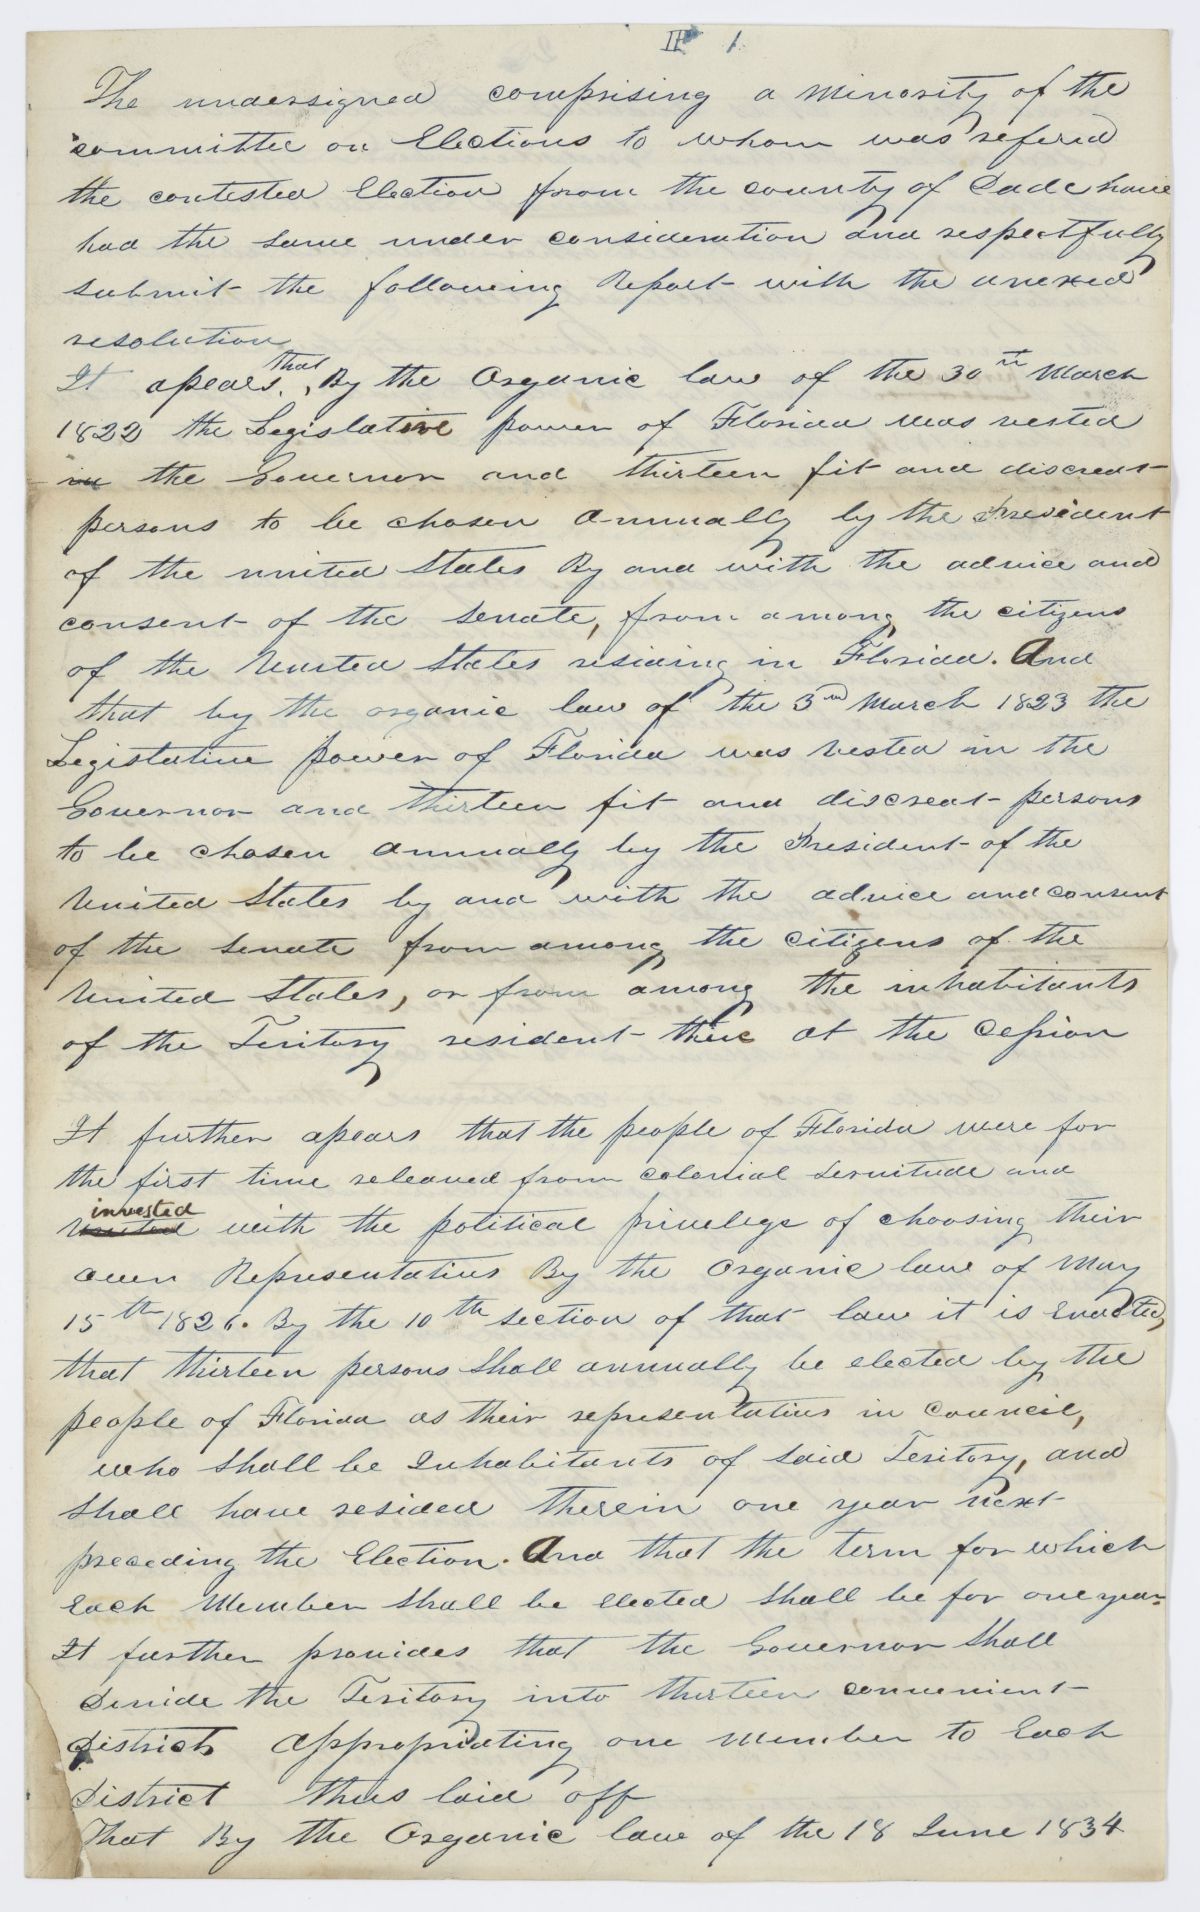 II 1
The undersigned comprising a Minority of the
committee on Elections to whom was refered
the contested Election from the county of Dade have
had the same under consideration and respectfully
submit the following Report with the anexed
resolution
It apears that By the Organic law of the 30th March
1822 the Legislative power of Florida was vested
in the Governor and thirteen fit and discreat
persons to be chosen Annually by the President
of the united States By and with the advice and
consent of the Senate, from among the citizens
of the United States residing in Florida. And
that by the organic law of the 3rd March 1823 the
Legislative power of Florida was vested in the
Governor and thirteen fit and discreat persons
to be chosen annually by the President of the
United States by and with the advice and consent
of the Senate from among the citizens of the
United States, or from among the inhabitants
of the Teritory resident there at the Cession
It further apears that the people of Florida were for
the first time releaved from colonial servitude and
invested
vested with the political privelege of choosing their
own Representatives By the Organic law of May
15th 1826. By the 10th section of that law it is Enacted,
that thirteen persons shall annually be elected by the
people of Florida as their representatives in Council,
who shall be Inhabitants of said Teritory, and
shall have resided therein one year next
preceding the Election. And that the term for which
Each Member shall be elected shall be for one year.
It further provides that the Governor shall
devide the Teritory into thirteen convenient
districts appropriating one member to Each
district thus laid off
That By the Organic law of the 18 June 1834